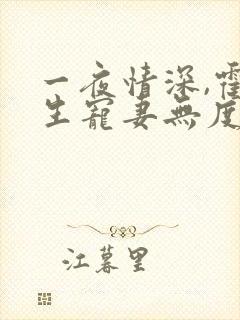 一夜情深,霍
生寵妻無度
江暮里